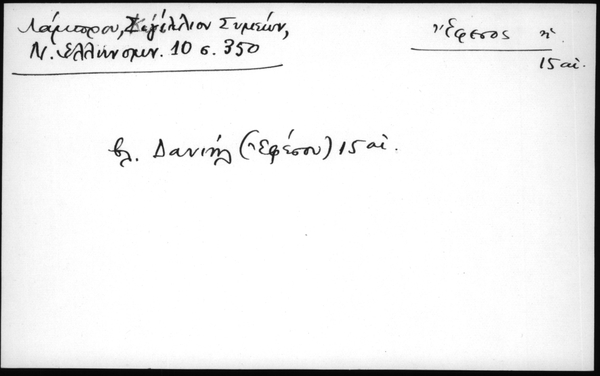 Λάμπρου, Σιγίλλιον Συμεών,
Ν. Ἑλληνομν. 10 σ. 350
Ἔφεσος ἡ
15 αἰ.
βλ. Δανιήλ (Ἐφέσου) 15 αἰ.